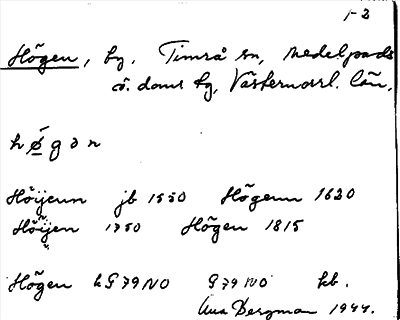 1-2
Högen, by. Timrå sn, Medelpads
ö. doms bg, Västernorrl. län.
h ǿ g ə n
Höijenn jb 1550 Högenn 1620
Höijen 1750 Högen 1815
Högen k G 79 NO G 79 NO kb.
Bergman 1944.